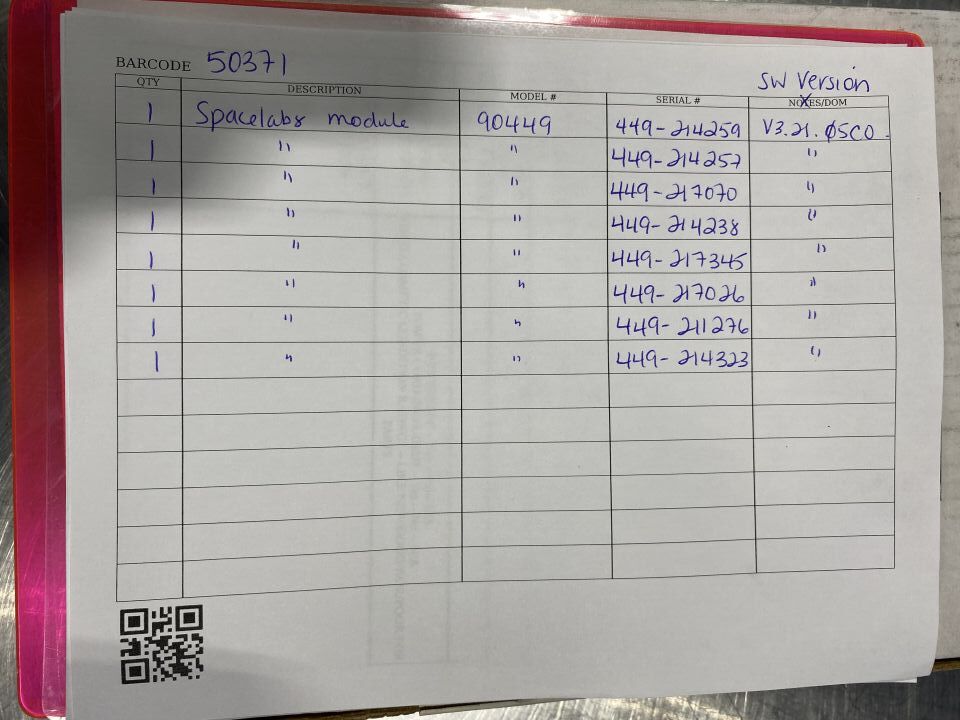 BARCODE 50371
SW Version
QTY DESCRIPTION MODEL # SERIAL # NOTES/DOM
1 Spacelabs module 90449 449-214259 V3.21.ØSCO.
1 " " 449-214257 "
1 " " 449-217070 "
1 " " 449-214238 "
1 " " 449-217345 "
1 " " 449-217026 "
1 " " 449-211276 "
1 " " 449-214323 "